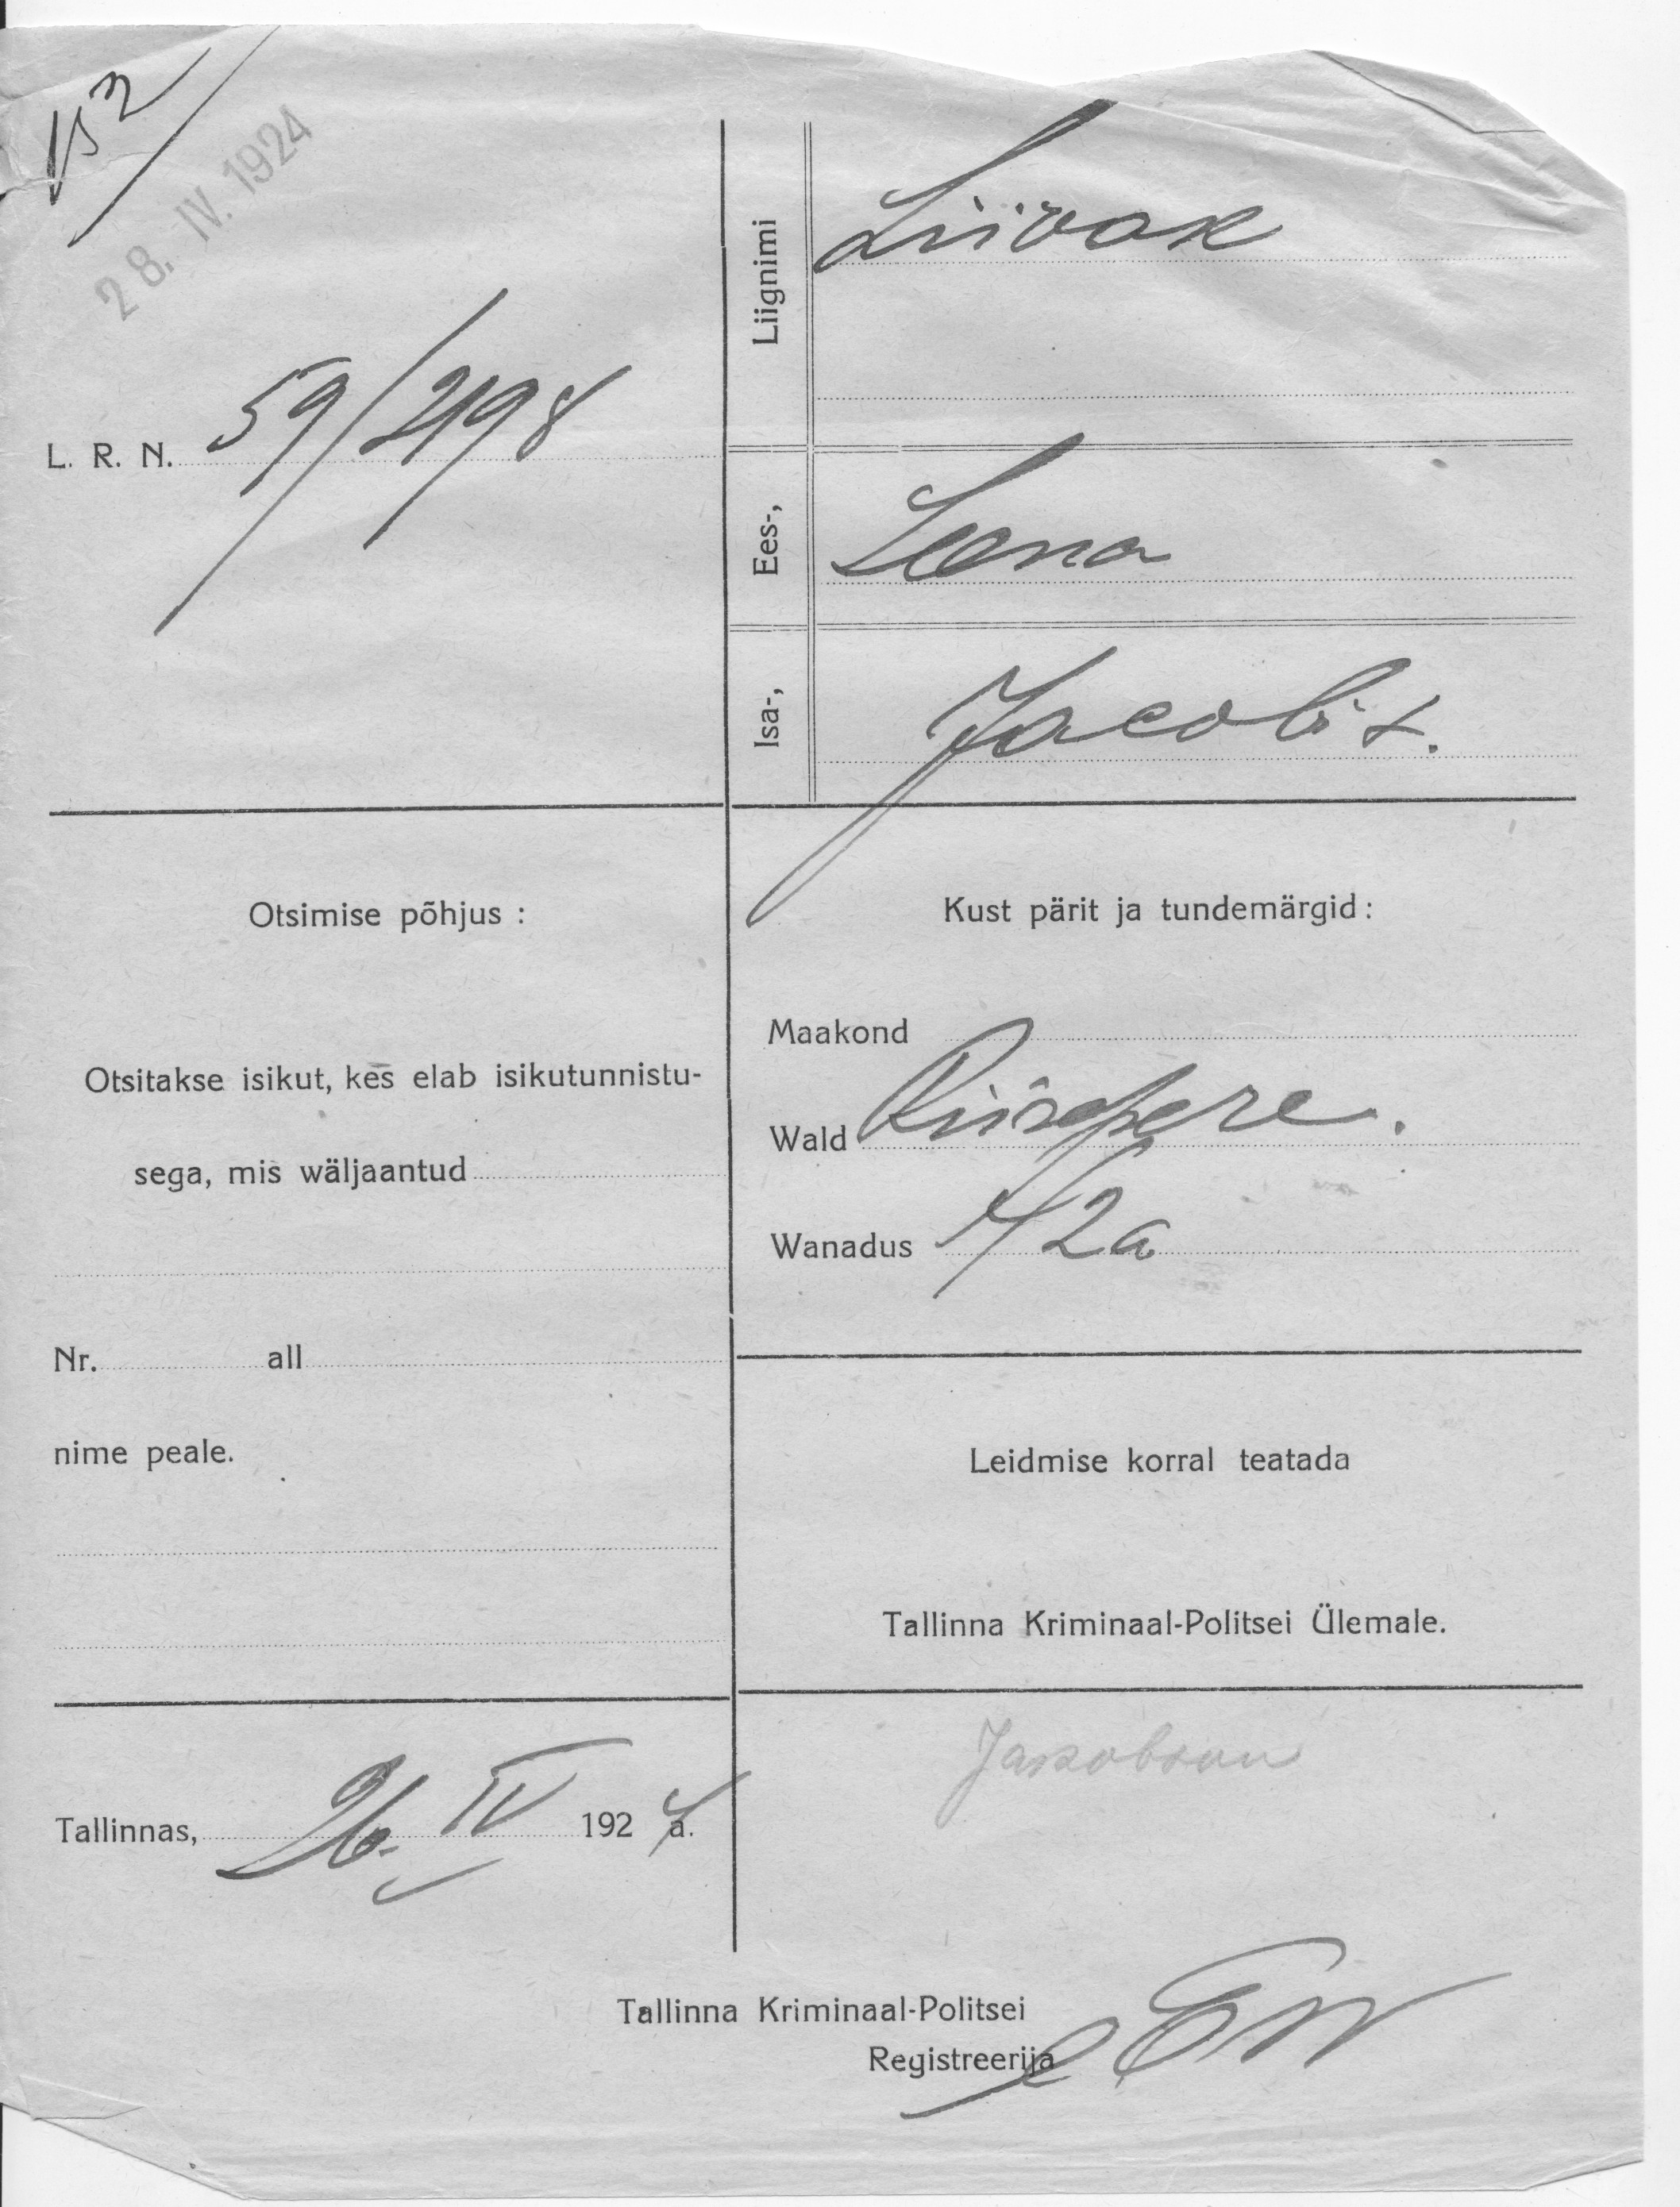 152
28. IV. 1924
L. R. N. 59/2198
Liignimi
Liivak
Ees-,
Leena
Isa-,
Jacobi t.
Otsimise põhjus :
Otsitakse isikut, kes elab isikutunnistu-
sega, mis wäljaantud
Nr. all
nime peale.
Kust pärit ja tundemärgid :
Maakond
Wald Riisipere.
Wanadus 42 a
Leidmise korral teatada
Tallinna Kriminaal-Politsei Ülemale.
Tallinnas, 26. IV 1924 a.
Jakobson
Tallinna Kriminaal-Politsei
Registreerija